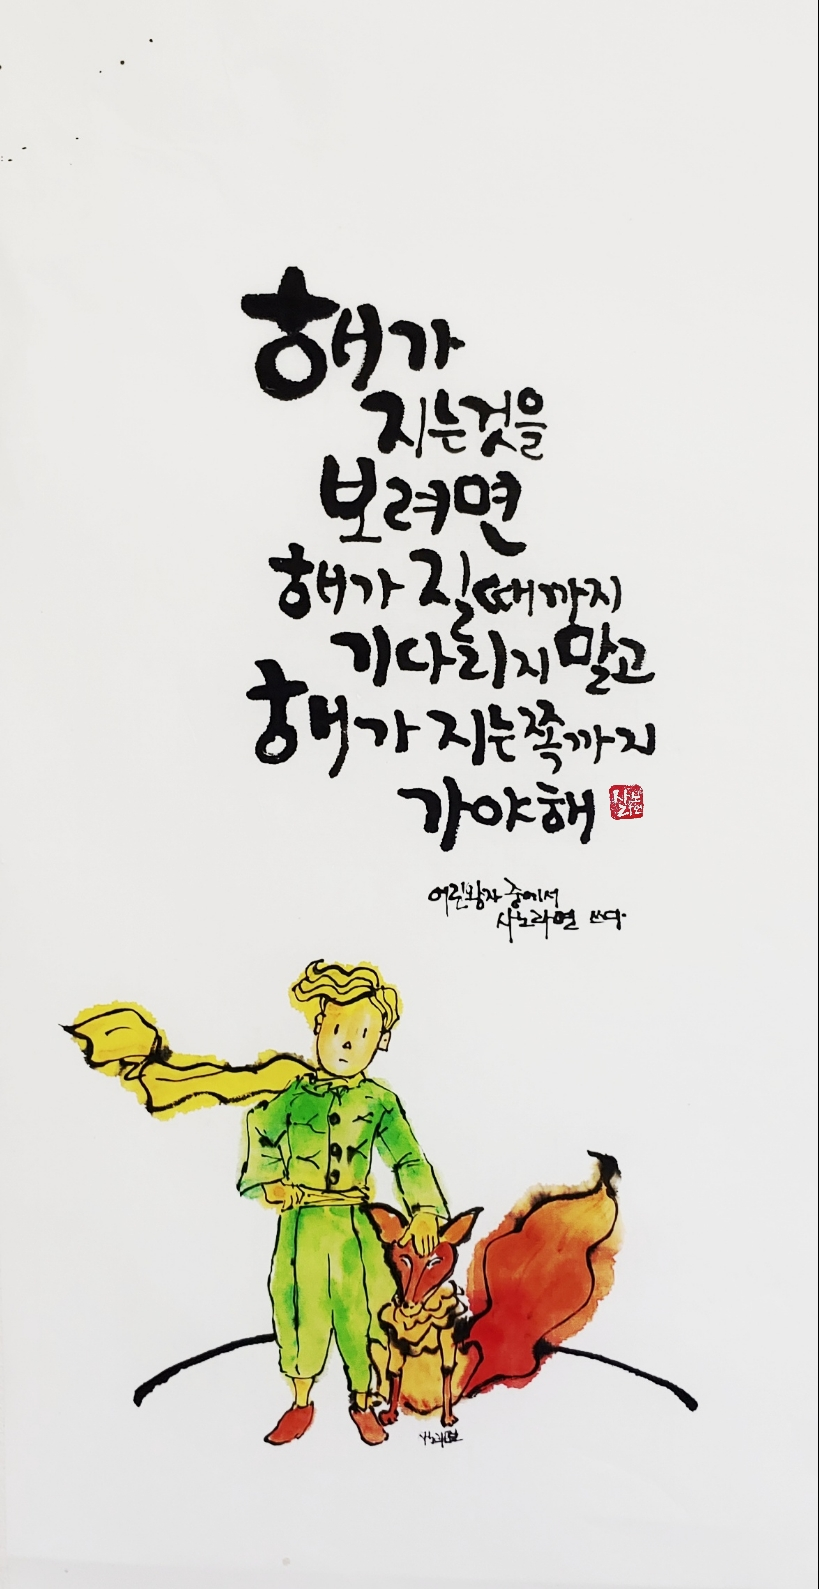 해가
지는것을
보려면
해가 질때까지
기다리지 말고
해가 지는쪽까지
가야해
어린왕자 중에서
사노라면 쓰다